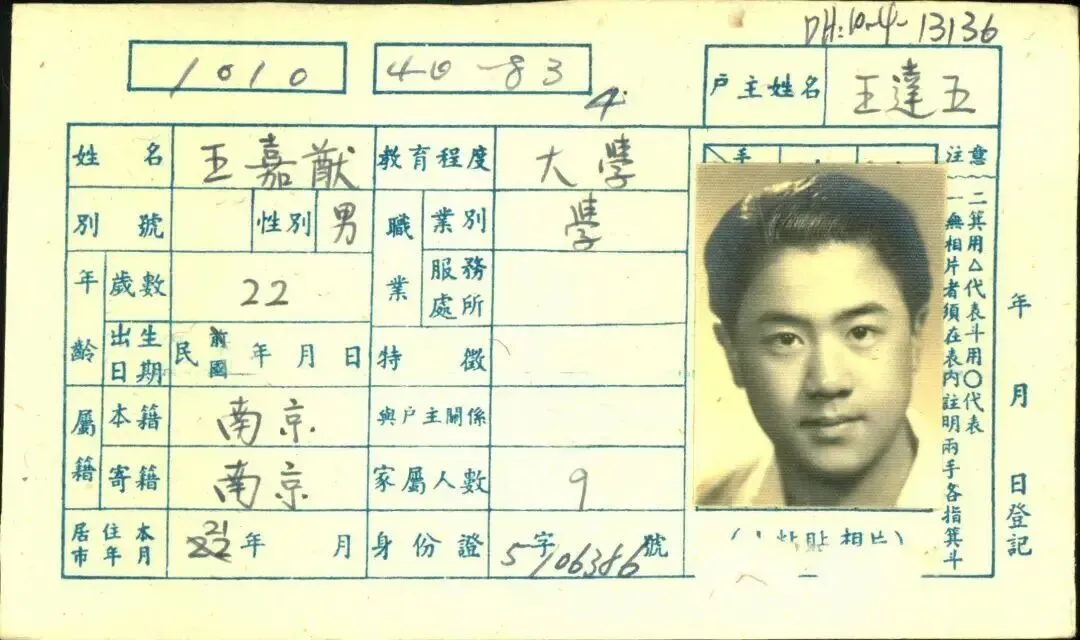 DH:10-4-13136
1010
40-83
4
户主姓名 王達五
姓名 王嘉猷 教育程度 大學
別號 性別 男 職業 業別 學
年齡 歲數 22 服務處所
出生日期 民前國 年 月 日 特徵
屬籍 本籍 南京 與户主關係
寄籍 南京 家屬人數 9
居住本市年月 21 年 月 身份證 5字106386號
手
注意
一無相片者須在表內註明兩手各指箕斗
二箕用△代表斗用○代表
年 月 日登記